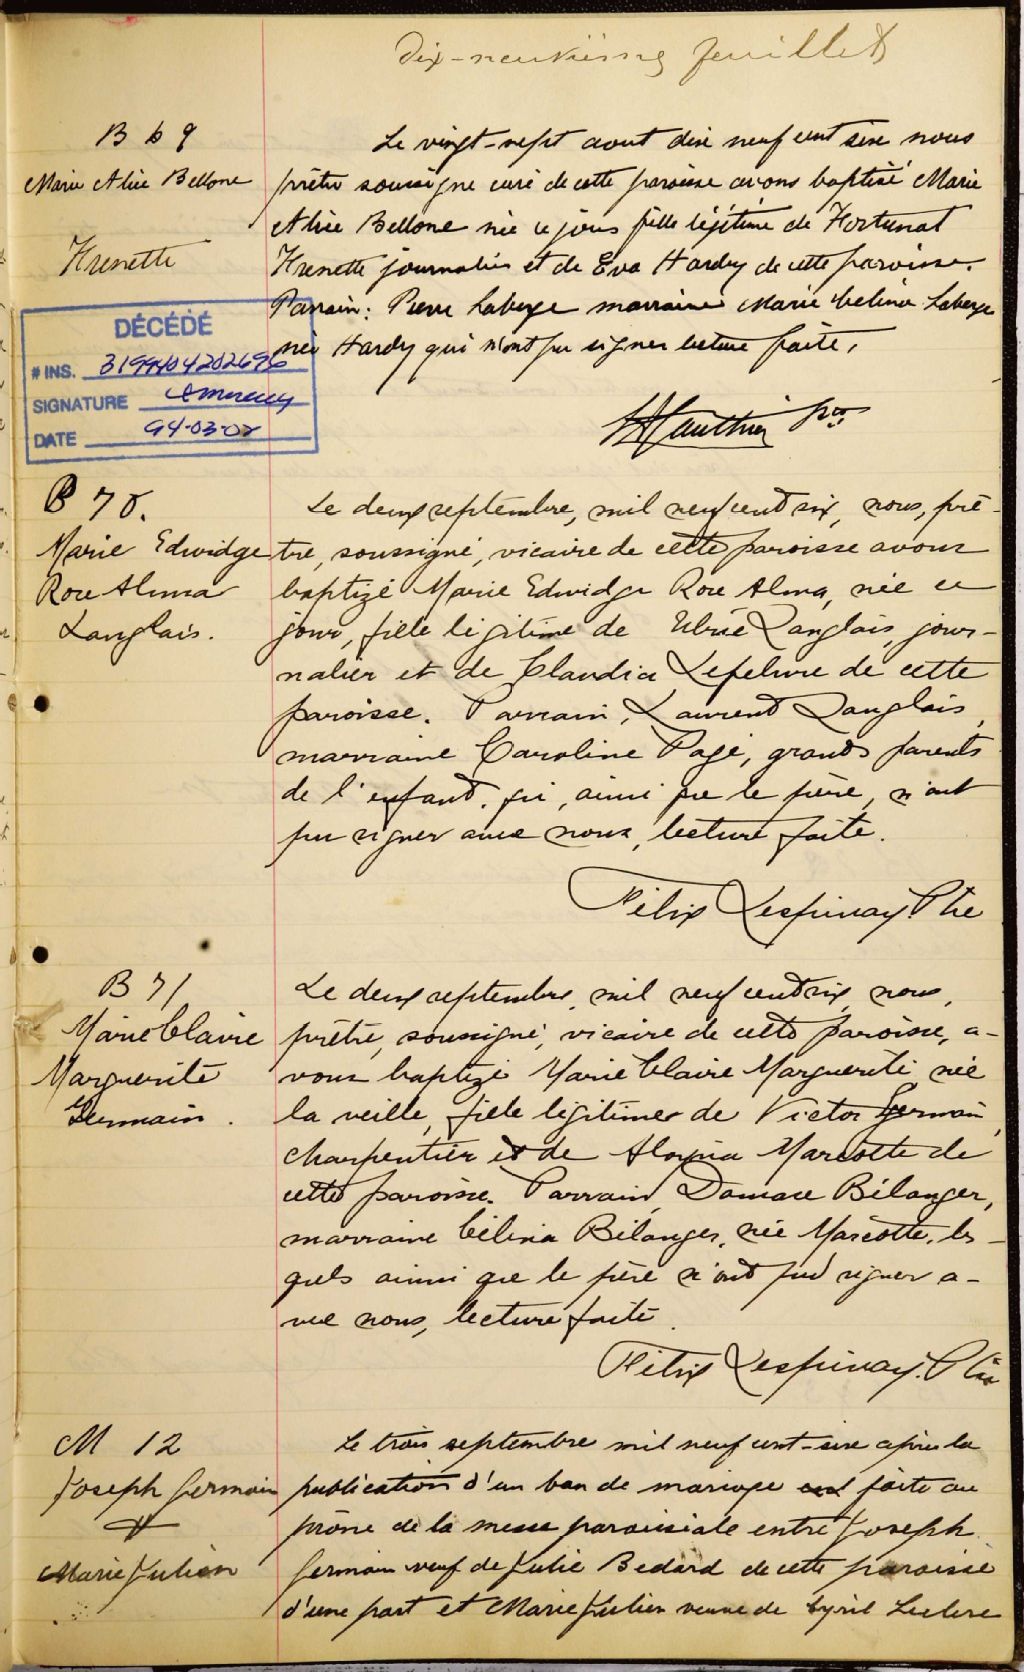 Dix-neuvième feuillet
B 69
Marie Alice Bellone
Frenette
Le vingt-sept aout dix neuf cent six nous
prêtre soussigné curé de cette paroisse avons baptisé Marie
Alice Bellone née ce jour fille légitime de Fortunat
Frenette journalier et de Eva Hardy de cette paroisse.
Parrain: Pierre Laberge marraine Marie Celina Laberge
née Hardy qui n'ont pu signer lecture faite.
Gauthier ptre
DÉCÉDÉ
# INS. 3199404202696
SIGNATURE
DATE 94-03-02
B 70.
Marie Edwidge
Rose Alma
Langlais.
Le deux septembre, mil neuf cent six, nous, prê-
tre, soussigné, vicaire de cette paroisse avons
baptizé Marie Edwidge Rose Alma, née ce
jour, fille légitime de Langlais, jour-
nalier et de Claudia Lefebvre de cette
paroisse. Parrain, Laurent Langlais,
marraine Caroline Pagé, grands parents
de l'enfant. qui, ainsi que le père, n'ont
pu signer avec nous, lecture faite.
Félix Lespinay Ptre
B 71
Marie Claire
Marguerite
Germain.
Le deux septembre, mil neuf cent six, nous,
prêtre, soussigné, vicaire de cette paroisse, a-
vons baptizé Marie Claire Marguerite née
la veille, fille légitime de Victor Germain,
charpentier et de Marcotte de
cette paroisse. Parrain, Damase Bélanger,
marraine Célina Bélanger, née Marcotte, les-
quels ainsi que le père n'ont pu signer a-
vec nous, lecture faite.
Félix Lespinay. Ptre
M 12
Joseph Germain
&
Marie Julien
Le trois septembre mil neuf cent-six après la
publication d'un ban de mariage faite au
prône de la messe paroissiale entre Joseph
Germain veuf de Julie Bedard de cette paroisse
d'une part et Marie Julien veuve de Cyril Leclerc